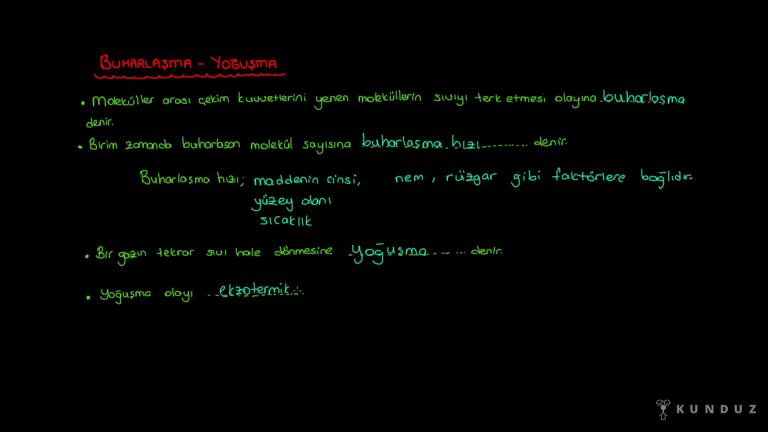 BUHARLAŞMA - YOĞUŞMA
• Moleküller arası çekim kuvvetlerini yenen moleküllerin sıvıyı terk etmesi olayına buharlaşma
denir.
• Birim zamanda buharlaşan molekül sayısına buharlaşma hızı.......... denir.
Buharlaşma hızı; maddenin cinsi, nem, rüzgar gibi faktörlere bağlıdır.
yüzey alanı
sıcaklık
• Bir gazın tekrar sıvı hale dönmesine yoğuşma....... denir.
• Yoğuşma olayı ...ekzotermik...
KUNDUZ